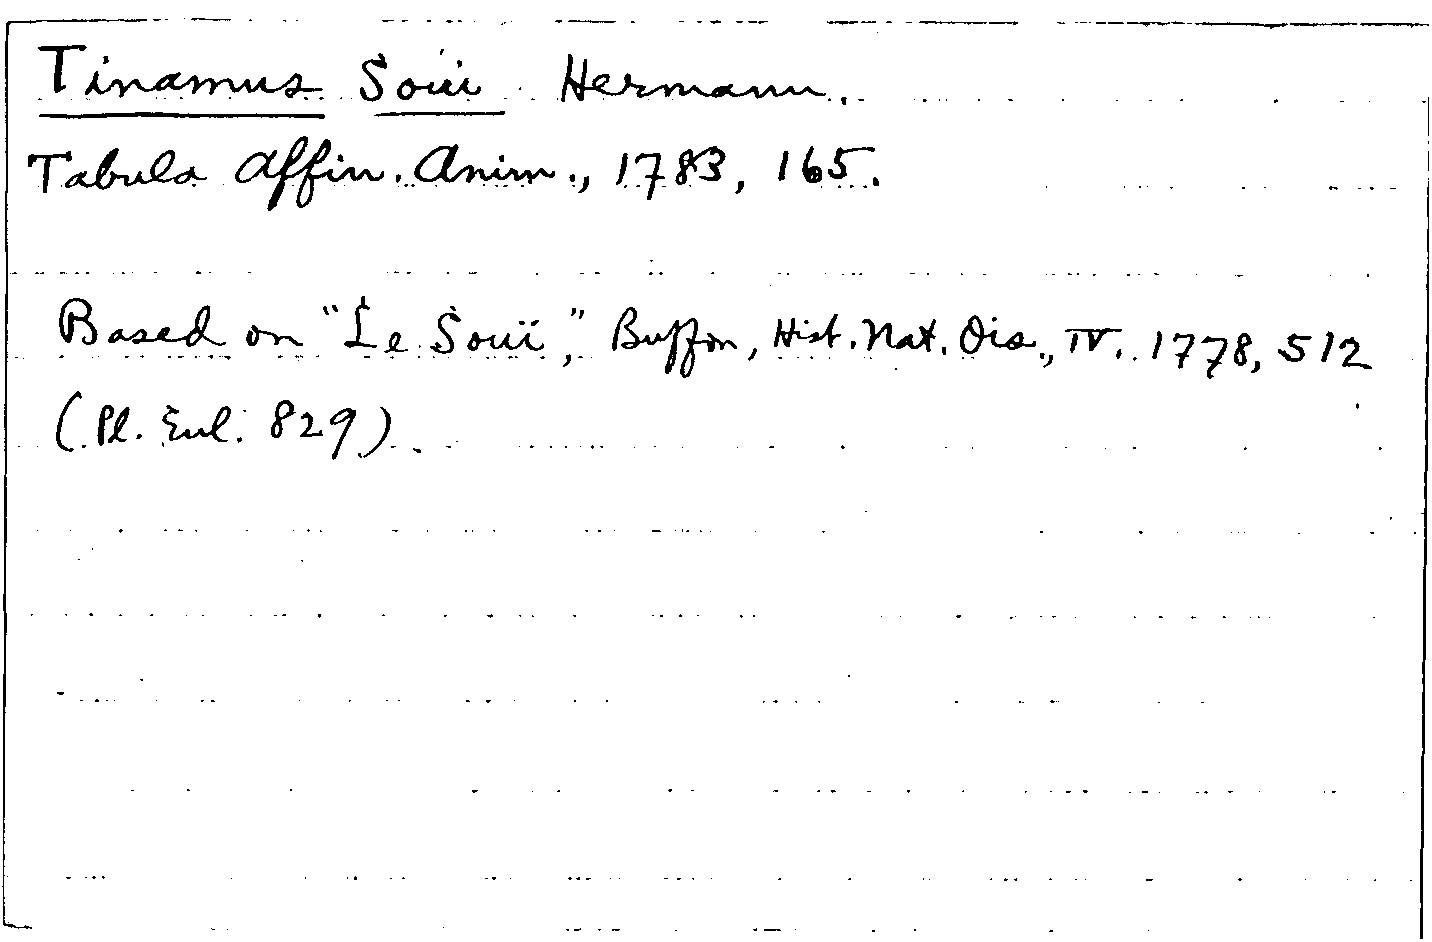 Tinamus Souï Hermann.
Tabula Affin. Anim., 1783, 165.
Based on "Le Souï," Buffon, Hist. Nat. Ois., IV. 1778, 512
(Pl. Enl. 829).